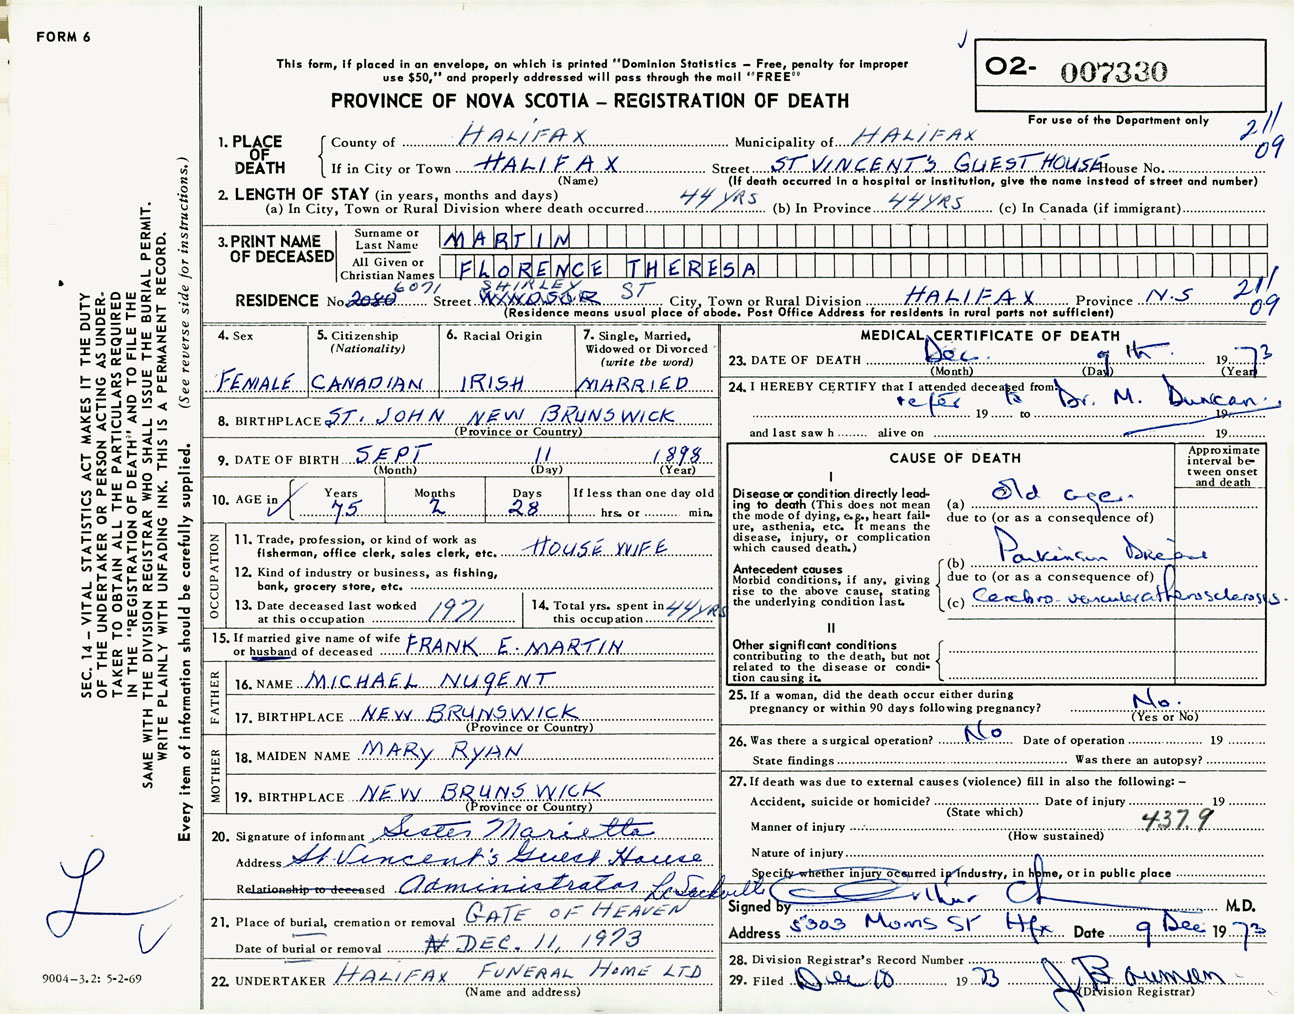 FORM 6
This form, if placed in an envelope, on which is printed "Dominion Statistics – Free, penalty for improper
use $50," and properly addressed will pass through the mail "FREE"
PROVINCE OF NOVA SCOTIA – REGISTRATION OF DEATH
02- 007330
For use of the Department only
211
09
1. PLACE OF DEATH
County of HALIFAX Municipality of HALIFAX
If in City or Town HALIFAX Street ST VINCENT'S GUEST HOUSE House No.
(Name) (If death occurred in a hospital or institution, give the name instead of street and number)
2. LENGTH OF STAY (in years, months and days)
(a) In City, Town or Rural Division where death occurred 44 YRS (b) In Province 44 YRS (c) In Canada (if immigrant)
3. PRINT NAME OF DECEASED
Surname or Last Name MARTIN
All Given or Christian Names FLORENCE THERESA
6071 SHIRLEY ST
RESIDENCE No. 2080 Street WINDSOR City, Town or Rural Division HALIFAX Province N.S
211
09
(Residence means usual place of abode. Post Office Address for residents in rural parts not sufficient)
4. Sex
FEMALE
5. Citizenship
(Nationality)
CANADIAN
6. Racial Origin
IRISH
7. Single, Married,
Widowed or Divorced
(write the word)
MARRIED
8. BIRTHPLACE ST. JOHN NEW BRUNSWICK
(Province or Country)
9. DATE OF BIRTH SEPT 11 1898
(Month) (Day) (Year)
10. AGE in
Years Months Days If less than one day old
75 2 28 hrs. or min.
OCCUPATION
11. Trade, profession, or kind of work as
fisherman, office clerk, sales clerk, etc. HOUSE WIFE
12. Kind of industry or business, as fishing,
bank, grocery store, etc.
13. Date deceased last worked
at this occupation 1971
14. Total yrs. spent in
this occupation 44 YRS
15. If married give name of wife
or husband of deceased FRANK E. MARTIN
FATHER
16. NAME MICHAEL NUGENT
17. BIRTHPLACE NEW BRUNSWICK
(Province or Country)
MOTHER
18. MAIDEN NAME MARY RYAN
19. BIRTHPLACE NEW BRUNSWICK
(Province or Country)
20. Signature of informant Sister Marietta
Address St. Vincent's Guest House
Relationship to deceased Administrator
21. Place of burial, cremation or removal GATE OF HEAVEN L. Sackville
Date of burial or removal N DEC. 11, 1973
22. UNDERTAKER HALIFAX FUNERAL HOME LTD
(Name and address)
MEDICAL CERTIFICATE OF DEATH
23. DATE OF DEATH Dec. 9th 1973
(Month) (Day) (Year)
24. I HEREBY CERTIFY that I attended deceased from
refer to Dr. M. Duncan.
19 to 19
and last saw h alive on 19
CAUSE OF DEATH
Approximate
interval be-
tween onset
and death
I
Disease or condition directly lead-
ing to death (This does not mean
the mode of dying, e.g., heart fail-
ure, asthenia, etc. It means the
disease, injury, or complication
which caused death.)
(a) Old age.
due to (or as a consequence of)
Antecedent causes
Morbid conditions, if any, giving
rise to the above cause, stating
the underlying condition last.
(b) Parkinson Disease
due to (or as a consequence of)
(c) Cerebro-vascular atherosclerosis.
II
Other significant conditions
contributing to the death, but not
related to the disease or condi-
tion causing it.
25. If a woman, did the death occur either during
pregnancy or within 90 days following pregnancy? No.
(Yes or No)
26. Was there a surgical operation? No Date of operation 19
State findings Was there an autopsy?
27. If death was due to external causes (violence) fill in also the following: –
Accident, suicide or homicide? Date of injury 19
(State which)
Manner of injury 437.9
(How sustained)
Nature of injury
Specify whether injury occurred in industry, in home, or in public place
Signed by Arthur M.D.
Address 5303 Morris ST Hfx Date 9 Dec 1973
28. Division Registrar's Record Number
29. Filed Dec 10 1973 J Bowman
(Division Registrar)
SEC. 14 – VITAL STATISTICS ACT MAKES IT THE DUTY
OF THE UNDERTAKER OR PERSON ACTING AS UNDER-
TAKER TO OBTAIN ALL THE PARTICULARS REQUIRED
IN THE "REGISTRATION OF DEATH" AND TO FILE THE
SAME WITH THE DIVISION REGISTRAR WHO SHALL ISSUE THE BURIAL PERMIT.
WRITE PLAINLY WITH UNFADING INK. THIS IS A PERMANENT RECORD.
Every item of information should be carefully supplied. (See reverse side for instructions.)
9004-3.2: 5-2-69